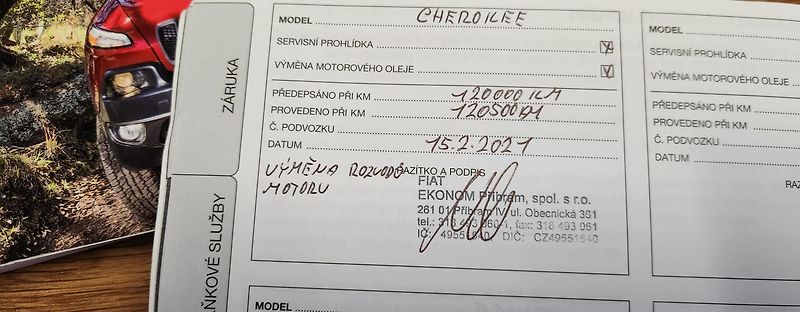 MODEL CHEROKEE
SERVISNÍ PROHLÍDKA
VÝMĚNA MOTOROVÉHO OLEJE
PŘEDEPSÁNO PŘI KM 120000 KM
PROVEDENO PŘI KM 120500
Č. PODVOZKU
DATUM 15.2.2021
RAZÍTKO A PODPIS
VÝMĚNA ROZVODŮ
MOTORU
FIAT
EKONOM Příbram, spol. s r.o.
261 01 Příbram IV, ul. Obecnická 361
tel.: 318 493 060/1, fax: 318 493 061
IČ: 49551540 DIČ: CZ49551540
MODEL
ZÁRUKA
ŇKOVÉ SLUŽBY
MODEL
SERVISNÍ PROHLÍDKA
VÝMĚNA MOTOROVÉHO OLEJE
PŘEDEPSÁNO PŘI KM
PROVEDENO PŘI KM
Č. PODVOZKU
DATUM
RAZ
MODEL